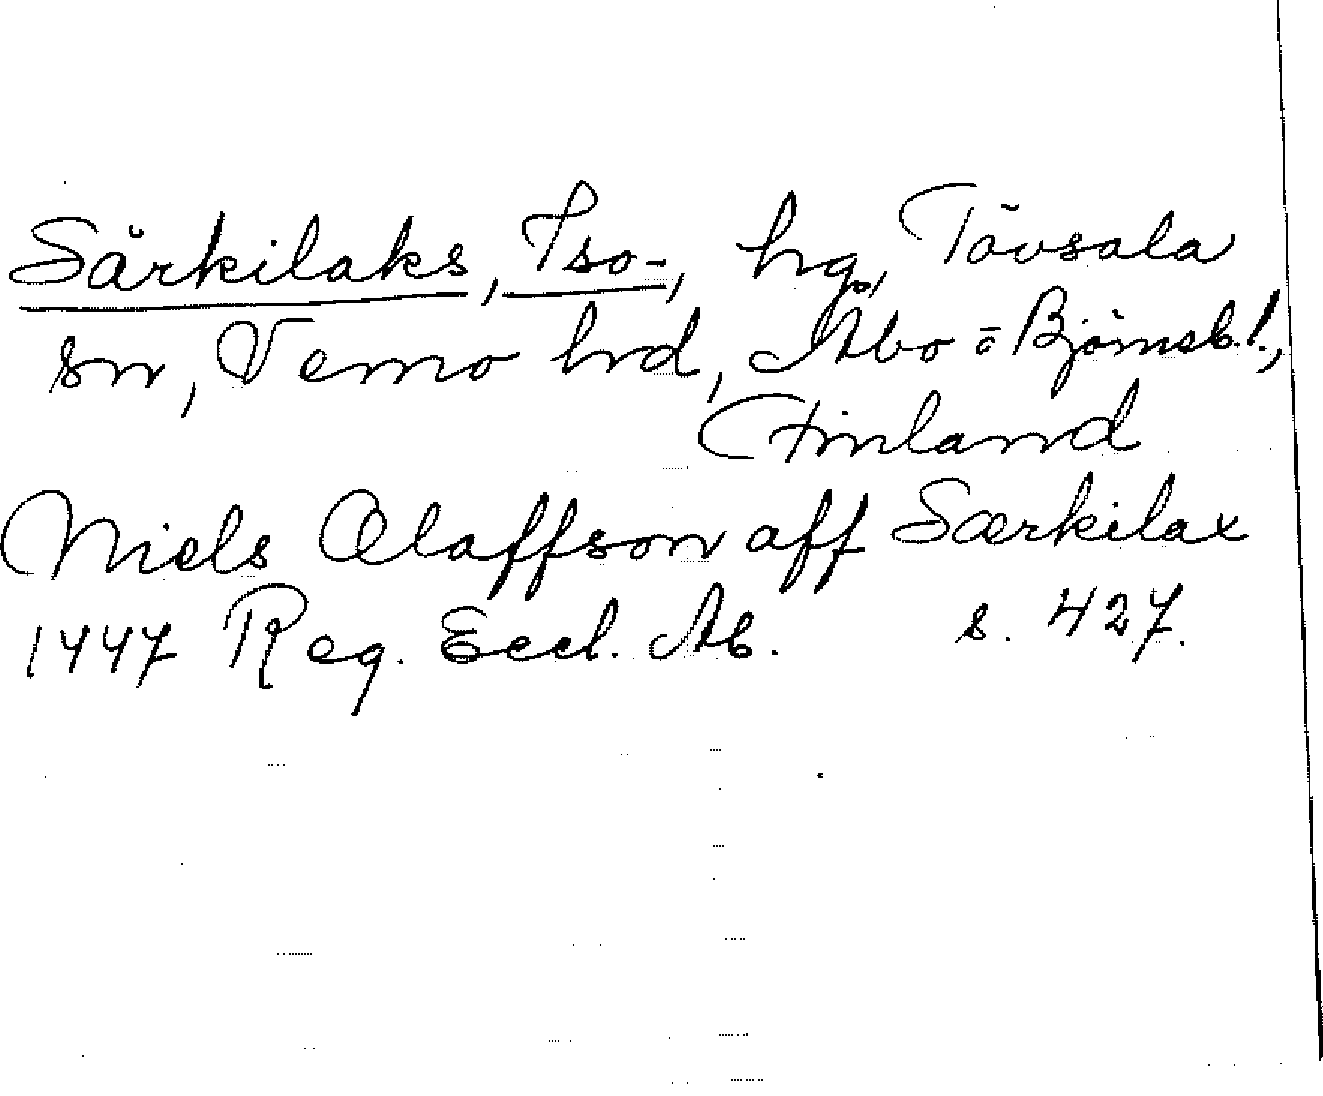 Särkilaks, Iso-, hg, Tövsala
sn, Vemo hrd, Åbo o Björneb. l.,
Finland
Niels Olaffson aff Særkilax
1447 Reg. Eccl. Ab. s. 427.